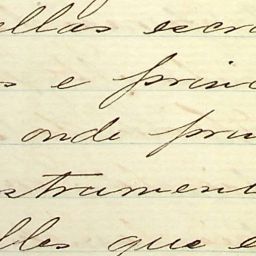 ellas escr
s e prin
onde pru
strument
lles que e